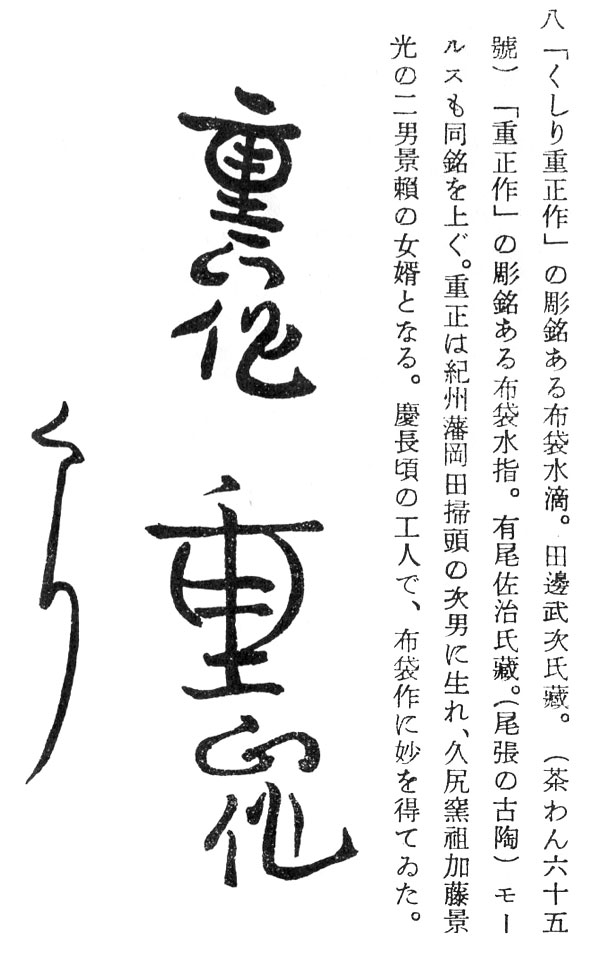 八「くしり重正作」の彫銘ある布袋水滴。田邊武次氏藏。（茶わん六十五
號）「重正作」の彫銘ある布袋水指。有尾佐治氏藏。（尾張の古陶）モー
ルスも同銘を上ぐ。重正は紀州藩岡田掃頭の次男に生れ、久尻窯祖加藤景
光の二男景賴の女婿となる。慶長頃の工人で、布袋作に妙を得てゐた。
重正作
重正作
くしり